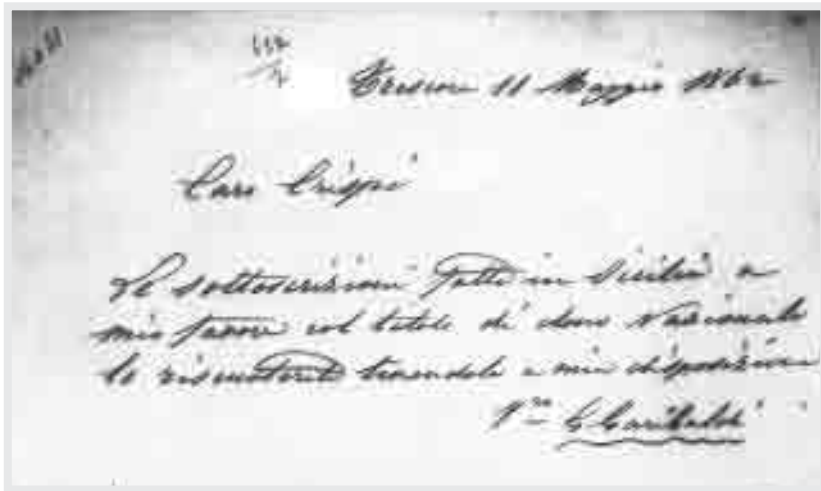 Trescore 11 Maggio 1862
Caro Crispi
Le sottoscrizioni fatte in Sicilia a
mio favore col titolo di dono Nazionale
le riscuoterete tenendole a mia disposizione
V.ro G Garibaldi